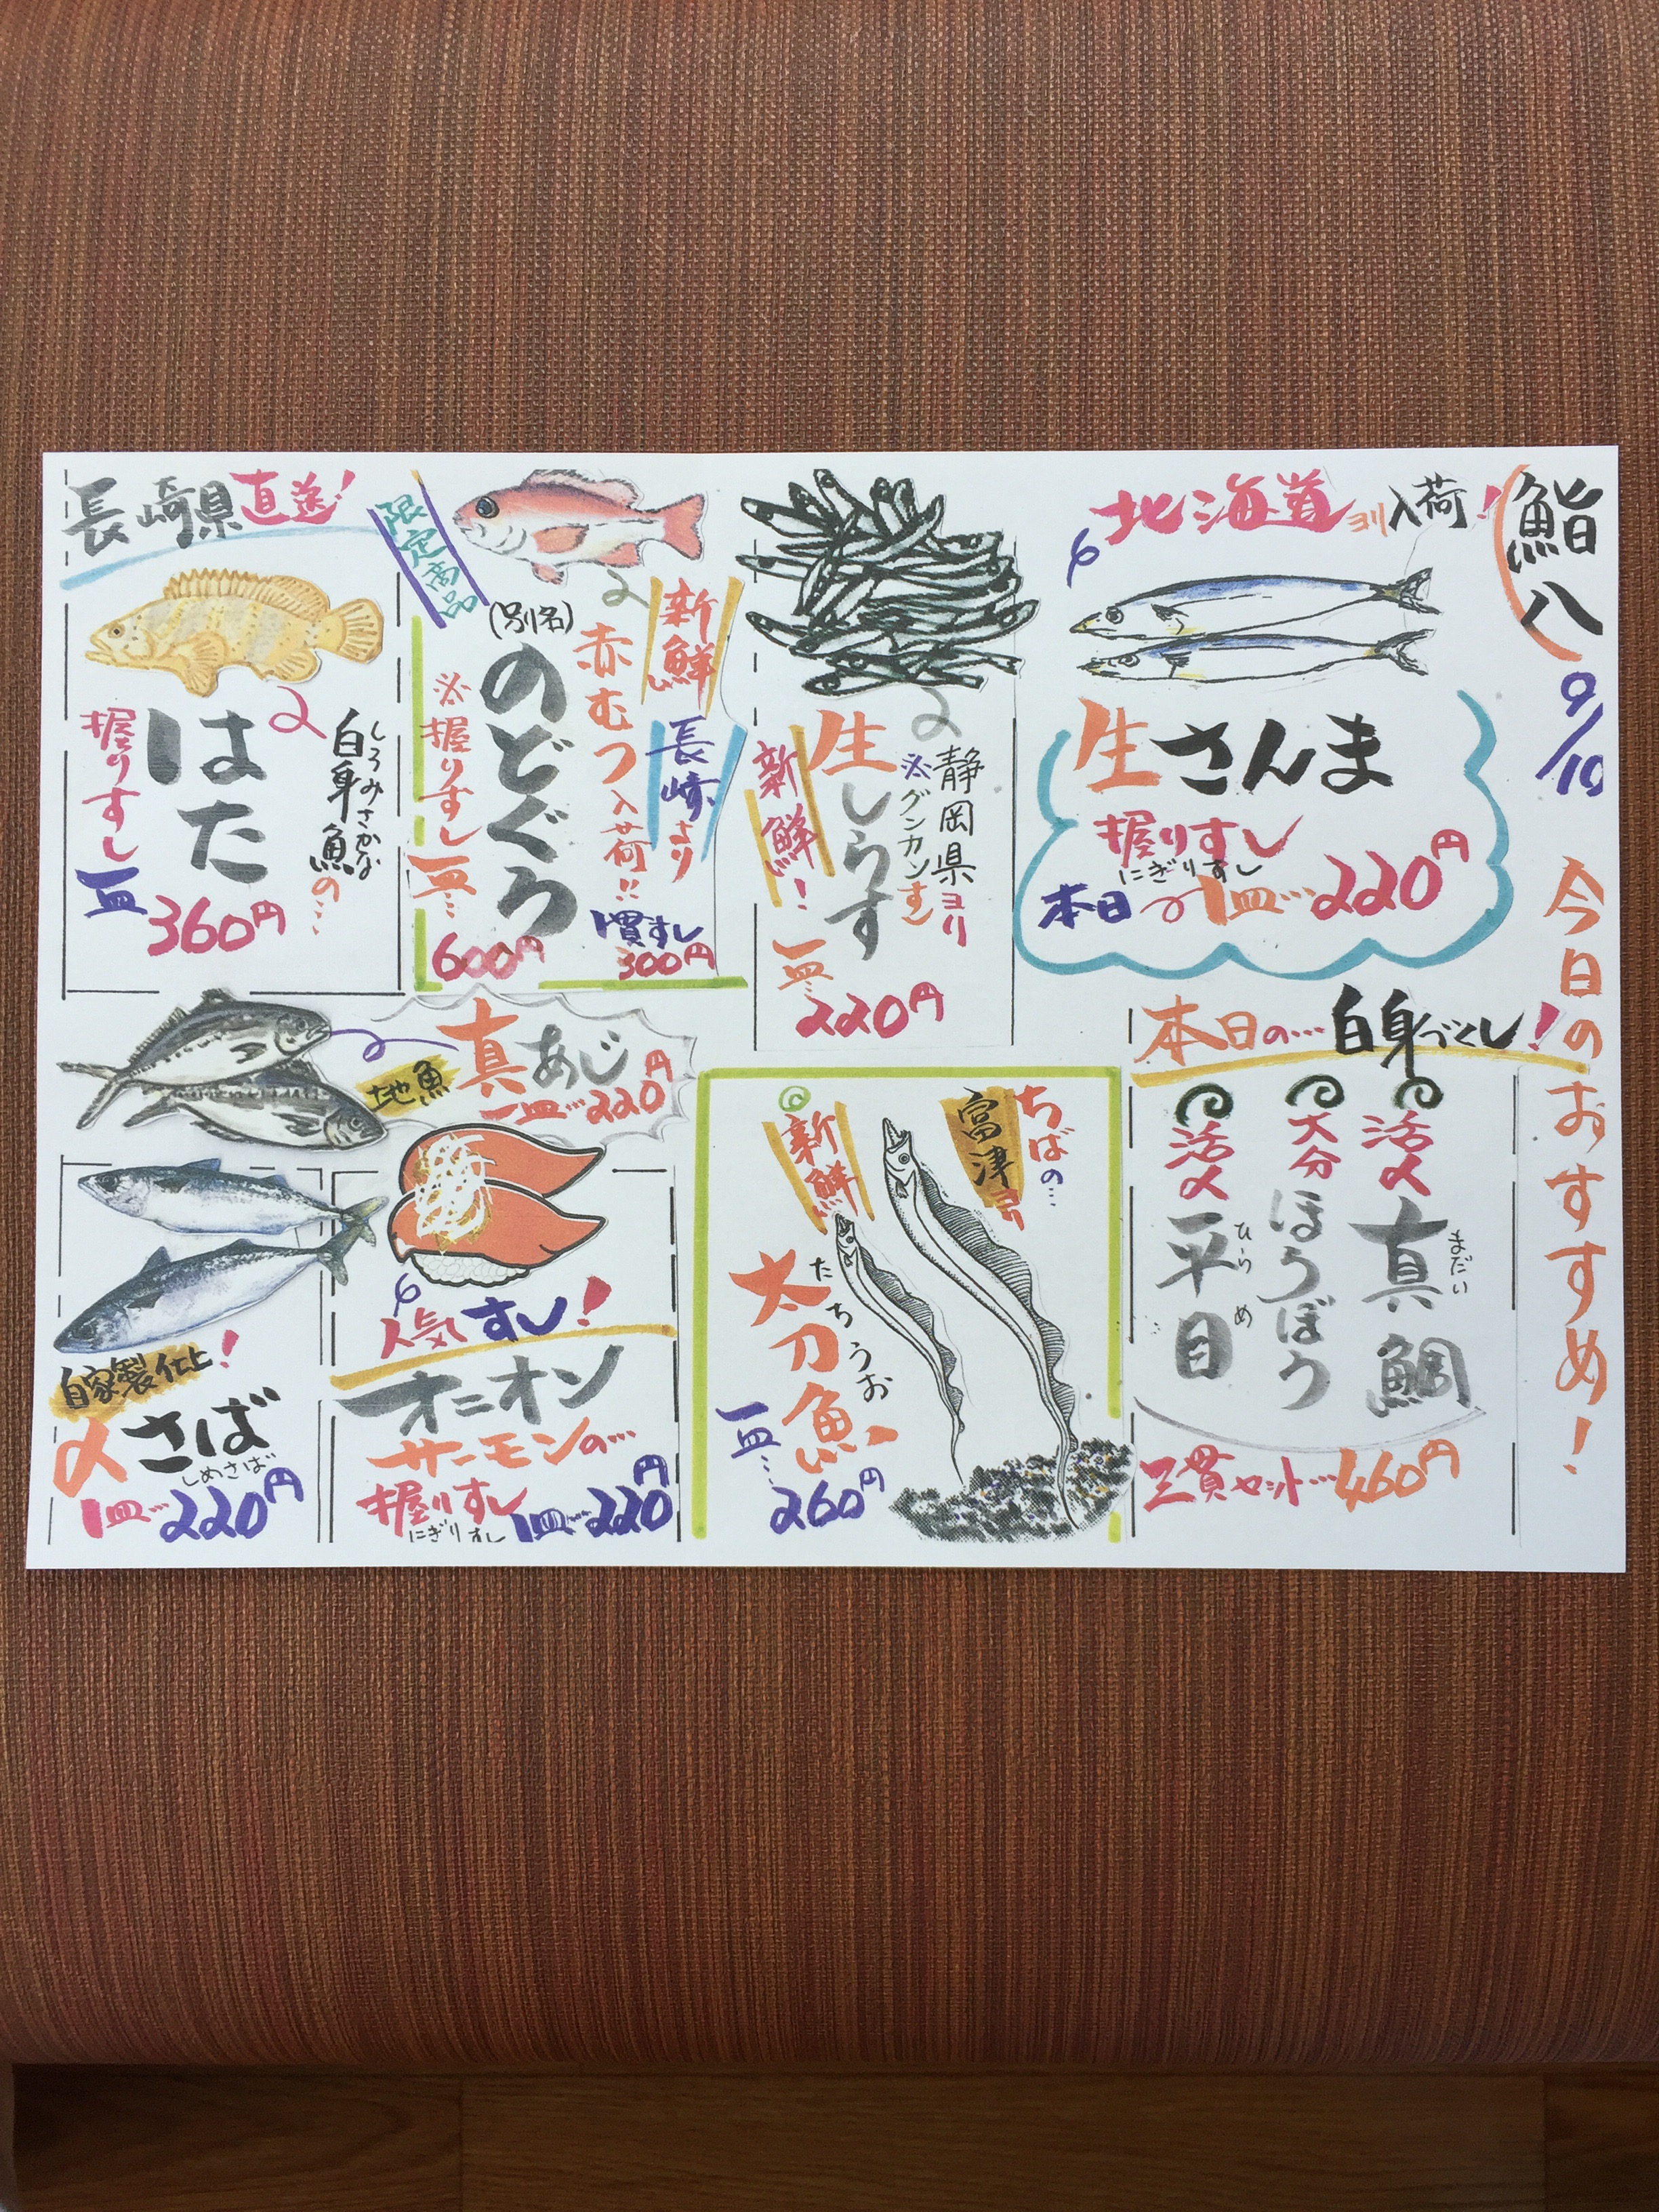 鮨八
9/10
今日のおすすめ!
北海道ヨリ入荷!
生さんま
握りすし
にぎりすし
本日1皿…220円
静岡県ヨリ
※グンカンすし
生しらす
新鮮!
一皿…
220円
限定商品
新鮮
長崎より
赤むつ入荷!!
(別名)
のどぐろ
※握りすし
一皿…
600円
1貫すし
300円
長崎県直送!
しろみさかな
白身魚の…
はた
握りすし
一皿
360円
本日の…白身づくし!
活〆
真鯛
まだい
大分
ほうぼう
活〆
平目
ひらめ
三貫セット…460円
ちばの…
富津
新鮮
太刀魚
たちうお
一皿…
260円
地魚
真あじ
一皿…220円
人気すし!
オニオン
サーモンの…
握りすし
にぎりすし
1皿…220円
自家製仕上!
〆さば
しめさば
1皿…220円